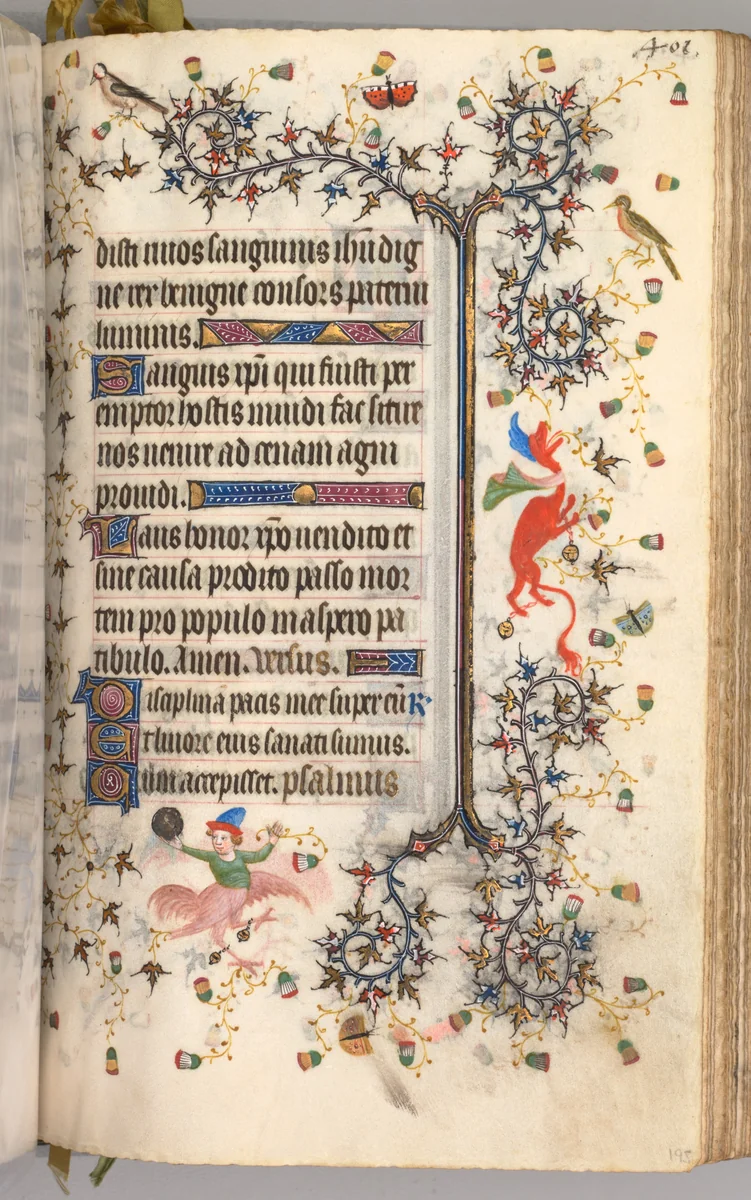 401.
disti tuos sanguinis ihu dig
ne rex benigne consors paterni
luminis.
Sanguis xpi qui fuisti per
emptor hostis mundi fac sitire
nos uenire ad cenam agni
prouidi.
Laus honor xpo uendito et
sine causa prodito passo mor
tem pro populo in aspero pa
tibulo. Amen. versus.
Disciplina pacis mee super eū R
Et liuore eius sanati sumus.
Quā accepisset. psalmus
195